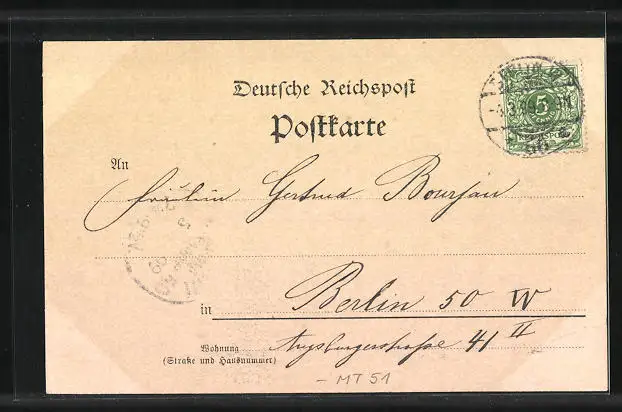 Deutsche Reichspost
Postkarte
An
Fräulein Gertrud Bourjau
in Berlin 50 W
Wohnung Augsburgerstraße 41 II
(Straße und Hausnummer)
5
REICHSPOST
- MT 51